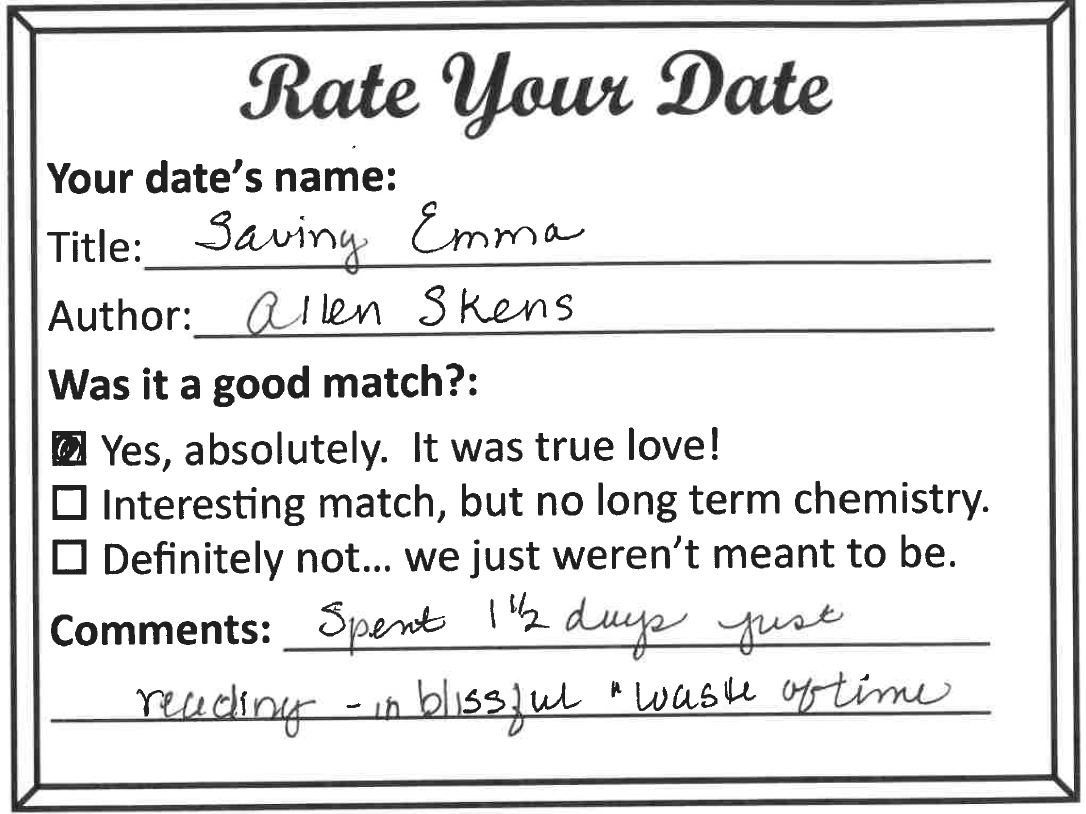 Rate Your Date
Your date's name:
Title: Saving Emma
Author: Allen Skens
Was it a good match?:
Yes, absolutely. It was true love!
Interesting match, but no long term chemistry.
Definitely not... we just weren't meant to be.
Comments: Spent 1 1/2 days just
reading - in blissful "waste of time